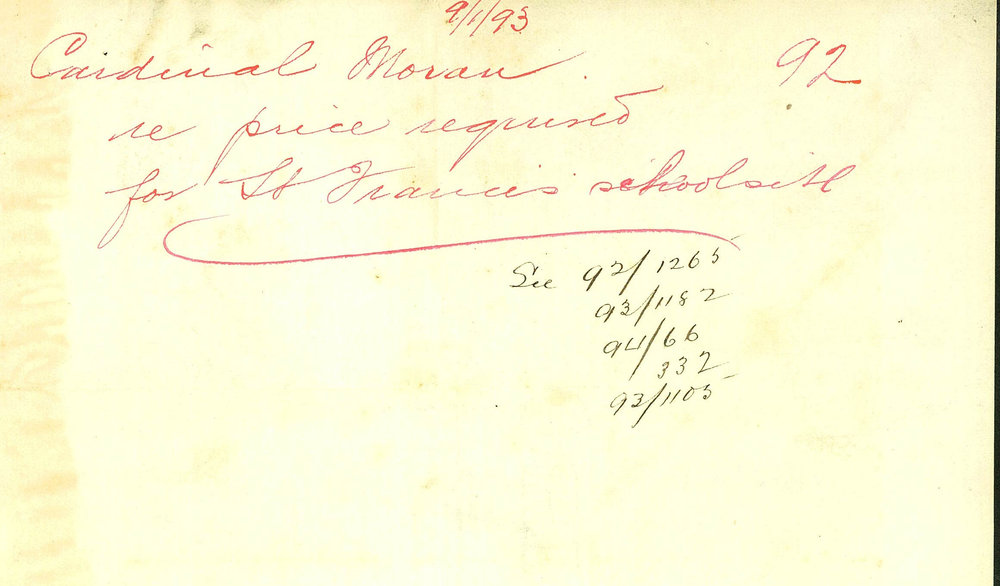 9/1/93
Cardinal Moran. 92
re price required
for St Francis' school site
See 92/1265
93/1182
94/66
332
93/1105